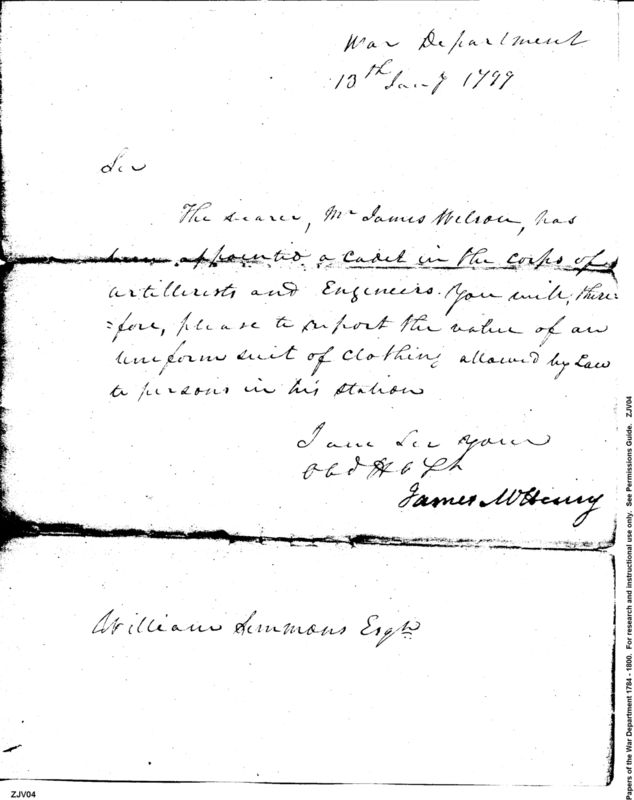 War Department
13th Jany 1799
Sir
The bearer, Mr James Wilson, has
been appointed a cadet in the corps of
artillerists and Engineers. You will, there=
=fore, please to report the value of an
uniform suit of clothing allowed by Law
to persons in his station
I am Sir your
Obd H b St
James McHenry
William Simmons Esqr
ZJV04
Papers of the War Department 1784 - 1800. For research and instructional use only. See Permissions Guide. ZJV04